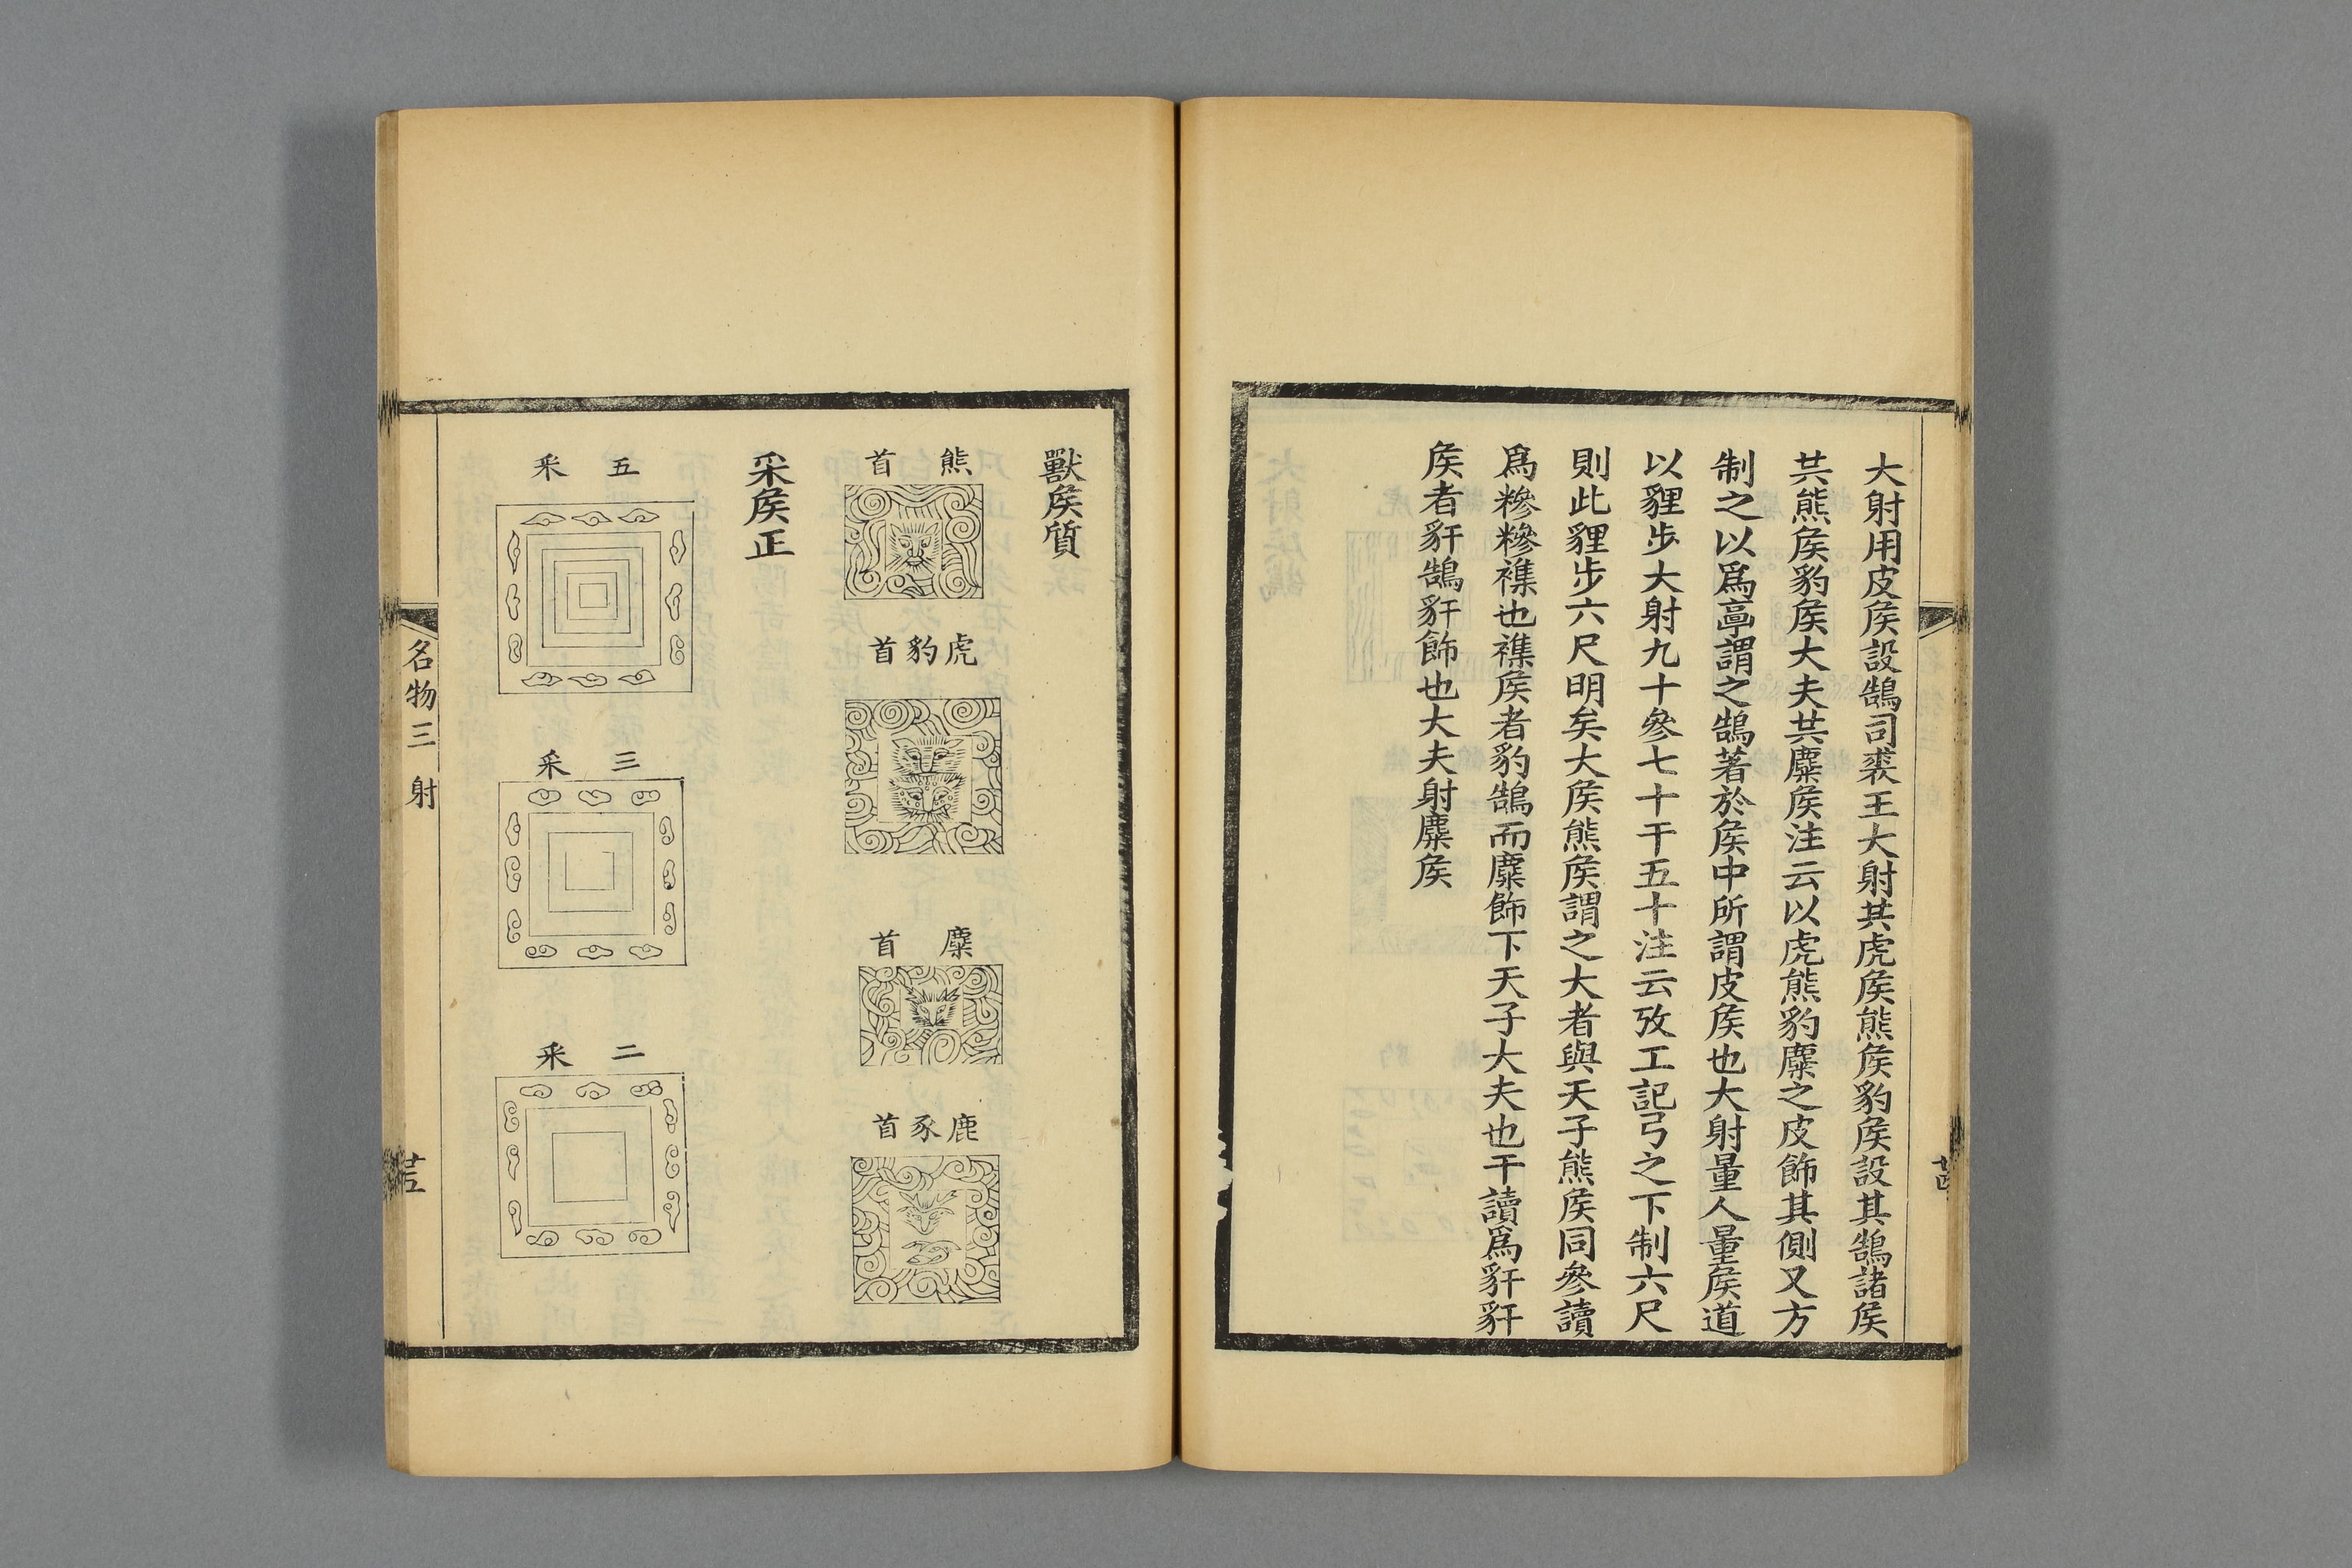 大射用皮矦設鵠司裘王大射共虎矦熊矦豹矦設其鵠諸矦
共熊矦豹矦大夫共麋矦注云以虎熊豹麋之皮飾其側又方
制之以爲𩫖謂之鵠著於矦中所謂皮矦也大射量人量矦道
以貍步大射九十參七十干五十注云攷工記弓之下制六尺
則此貍步六尺明矣大矦熊矦謂之大者與天子熊矦同參讀
爲糝糝襍也襍矦者豹鵠而麋飾下天子大夫也干讀爲豻豻
矦者豻鵠豻飾也大夫射麋矦
廿四
獸矦質
熊首
虎豹首
麋首
鹿豕首
采矦正
五采
三采
二采
名物三 射
廿五